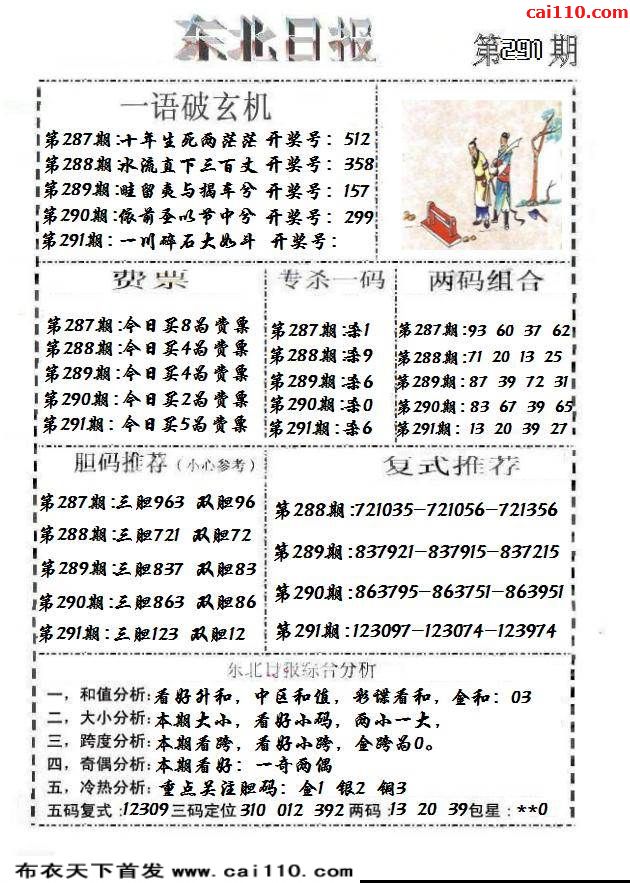 cai110.com
东北日报
第291期
一语破玄机
第287期:十年生死两茫茫 开奖号: 512
第288期:水流直下三百丈 开奖号: 358
第289期:畦留夷与揭车兮 开奖号: 157
第290期:依前圣以节中兮 开奖号: 299
第291期:一川碎石大如斗 开奖号:
费票
第287期:今日买8为费票
第288期:今日买4为费票
第289期:今日买4为费票
第290期:今日买2为费票
第291期:今日买5为费票
专杀一码
第287期:杀1
第288期:杀9
第289期:杀6
第290期:杀0
第291期:杀6
两码组合
第287期:93 60 37 62
第288期:71 20 13 25
第289期:87 39 72 31
第290期:83 67 39 65
第291期: 13 20 39 27
胆码推荐(小心参考)
第287期:三胆963 双胆96
第288期:三胆721 双胆72
第289期:三胆837 双胆83
第290期:三胆863 双胆86
第291期:三胆123 双胆12
复式推荐
第288期:721035-721056-721356
第289期:837921-837915-837215
第290期:863795-863751-863951
第291期:123097-123074-123974
东北日报综合分析
一,和值分析:看好升和,中区和值,彩蝶看和,金和:03
二、大小分析:本期大小,看好小码,两小一大,
三,跨度分析:本期看跨,看好小跨,金跨为0。
四,奇偶分析:本期看好:一奇两偶
五,冷热分析:重点关注胆码:金1 银2 铜3
五码复式:12309三码定位310 012 392两码:13 20 39包星:**0
布衣天下首发 www.cai110.com